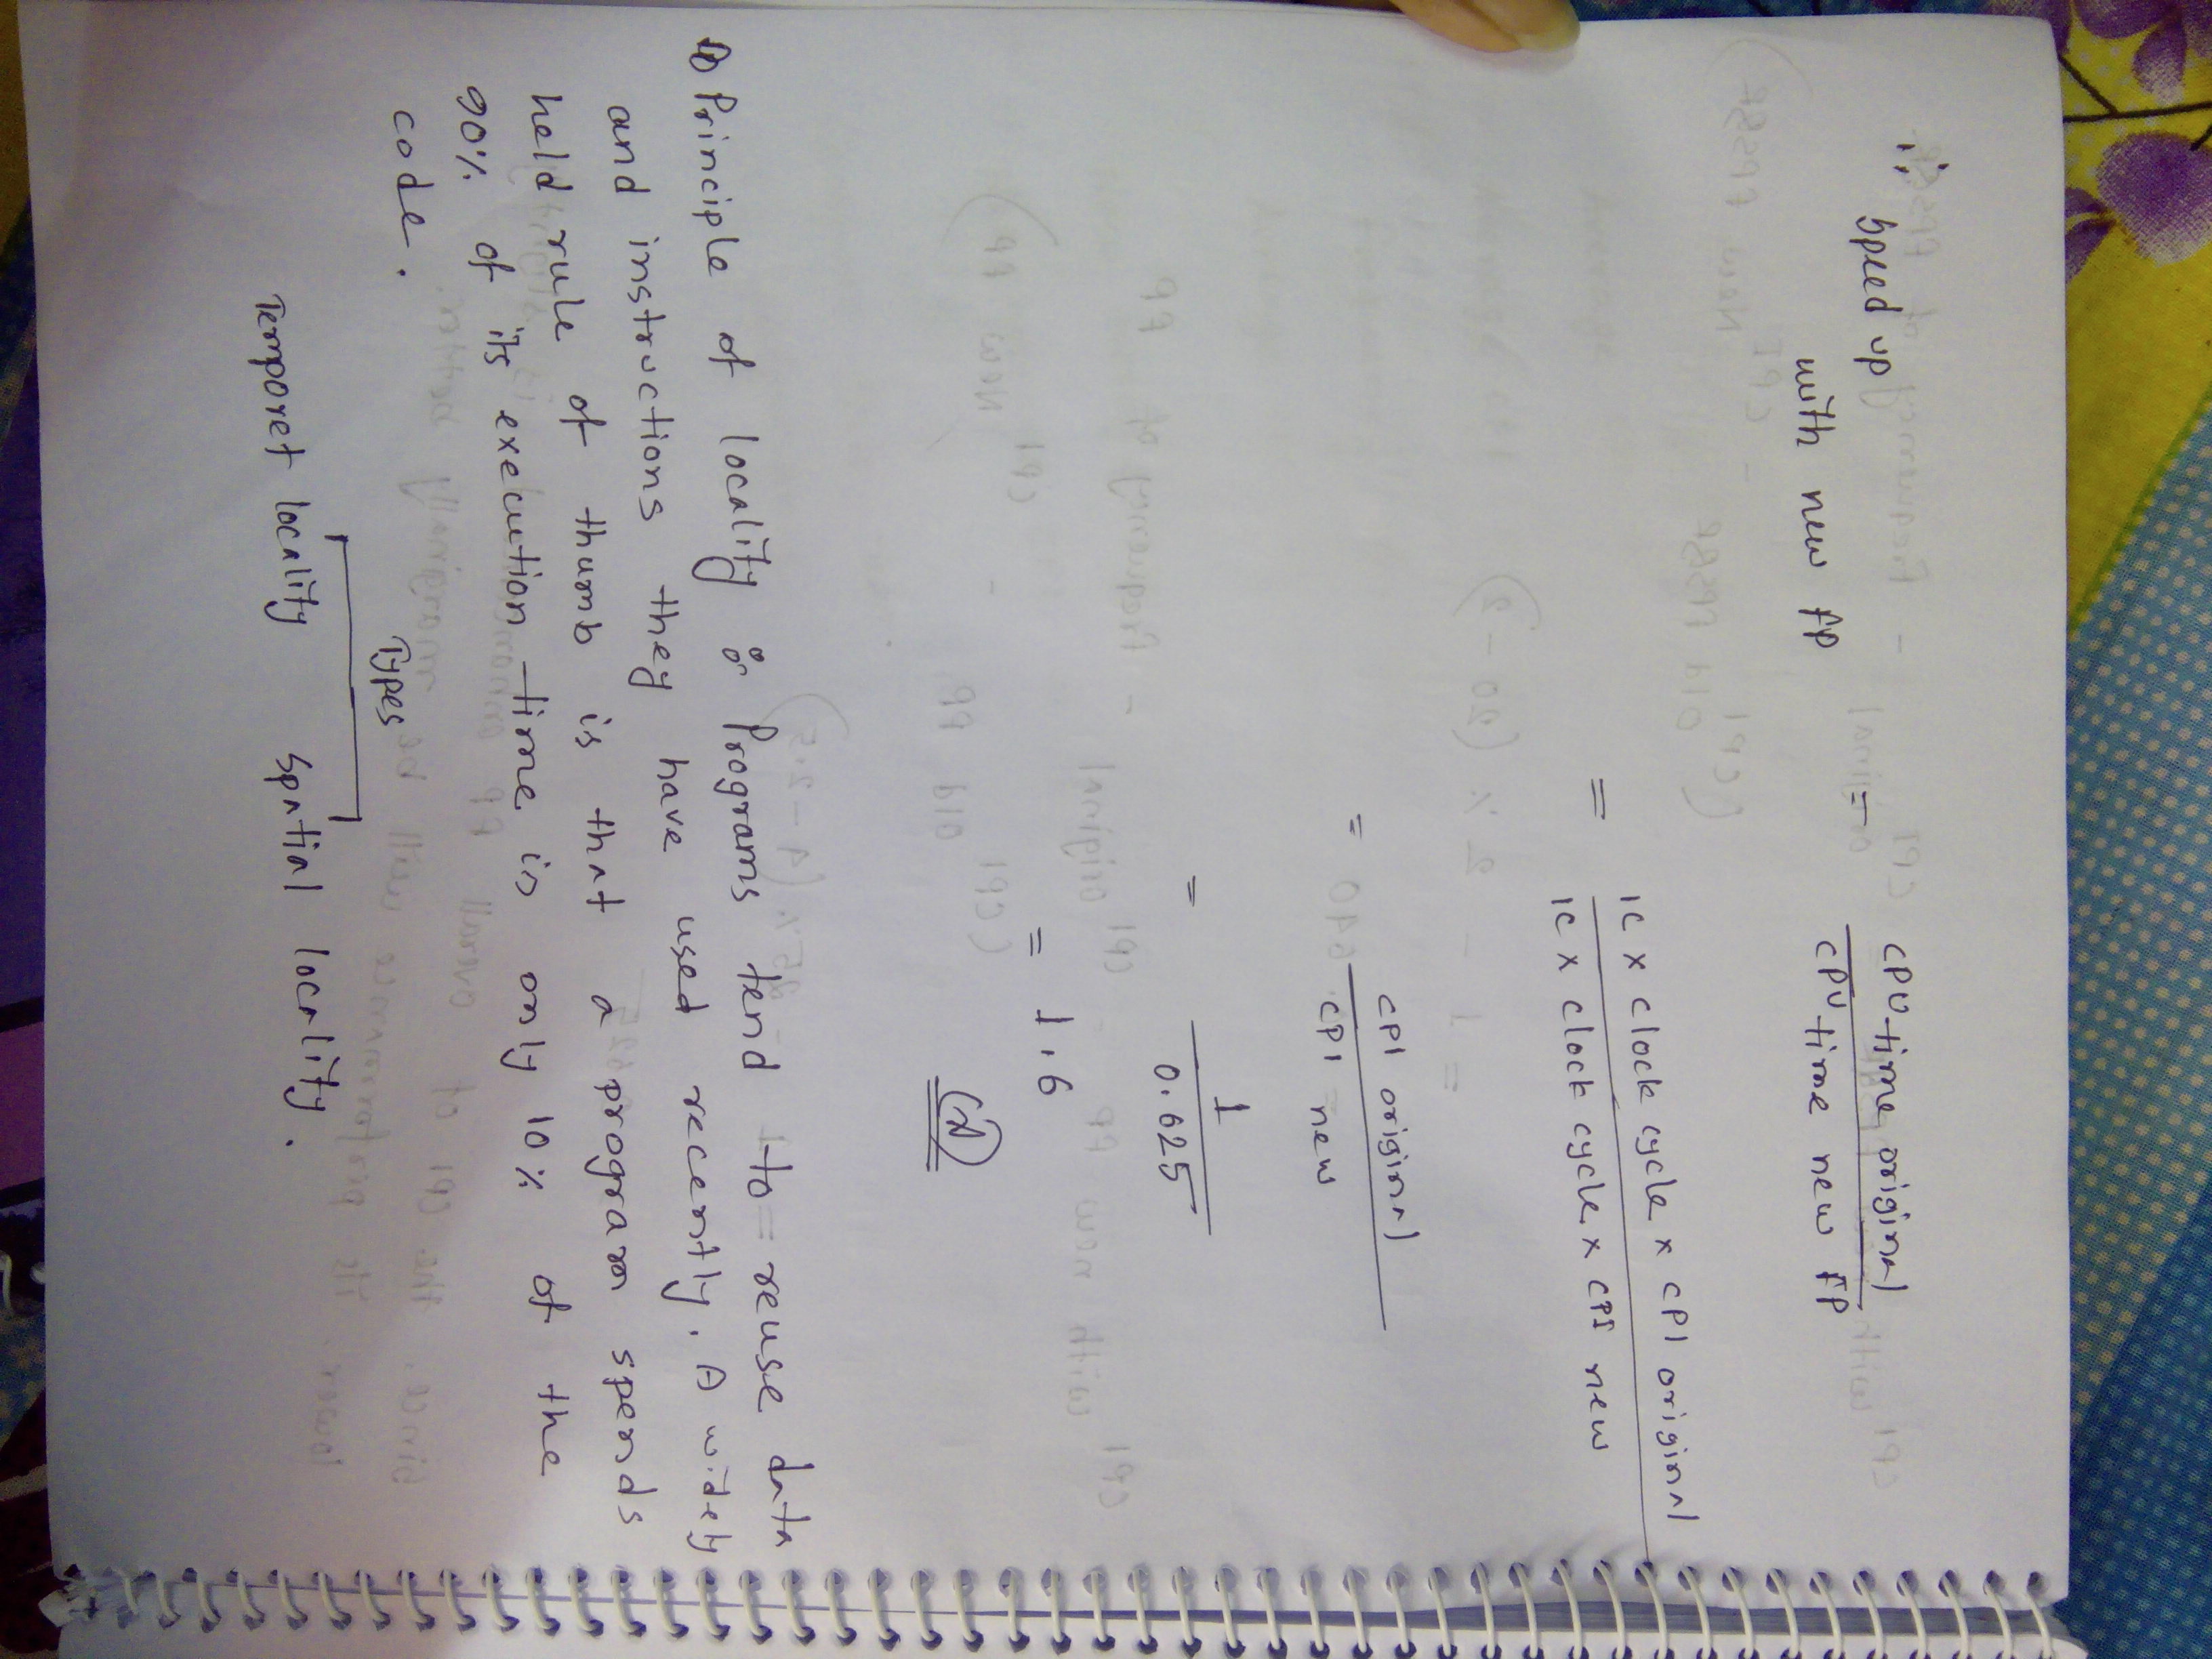 ∴ Speed up with new FP = CPU time original / CPU time new FP
= IC x clock cycle x CPI original / IC x clock cycle x CPI new
= CPI original / CPI new
= 1 / 0.625
= 1.6
Principle of locality : Programs tend to reuse data
and instructions they have used recently. A widely
held rule of thumb is that a program spends
90% of its execution time is only 10% of the
code.
Types
Temporet locality Spatial locality.